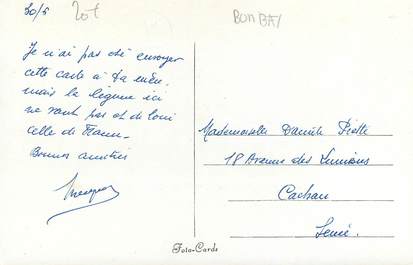 30/5
20f
BOMBAY
Je n'ai pas osé envoyer
cette carte à ta mère,
mais la légume ici
ne vaut pas et de loin
celle de France
Bonnes amitiés
Mademoiselle Danièle Piette
18 Avenue des Lumières
Cachan
Seine.
Foto-Cards